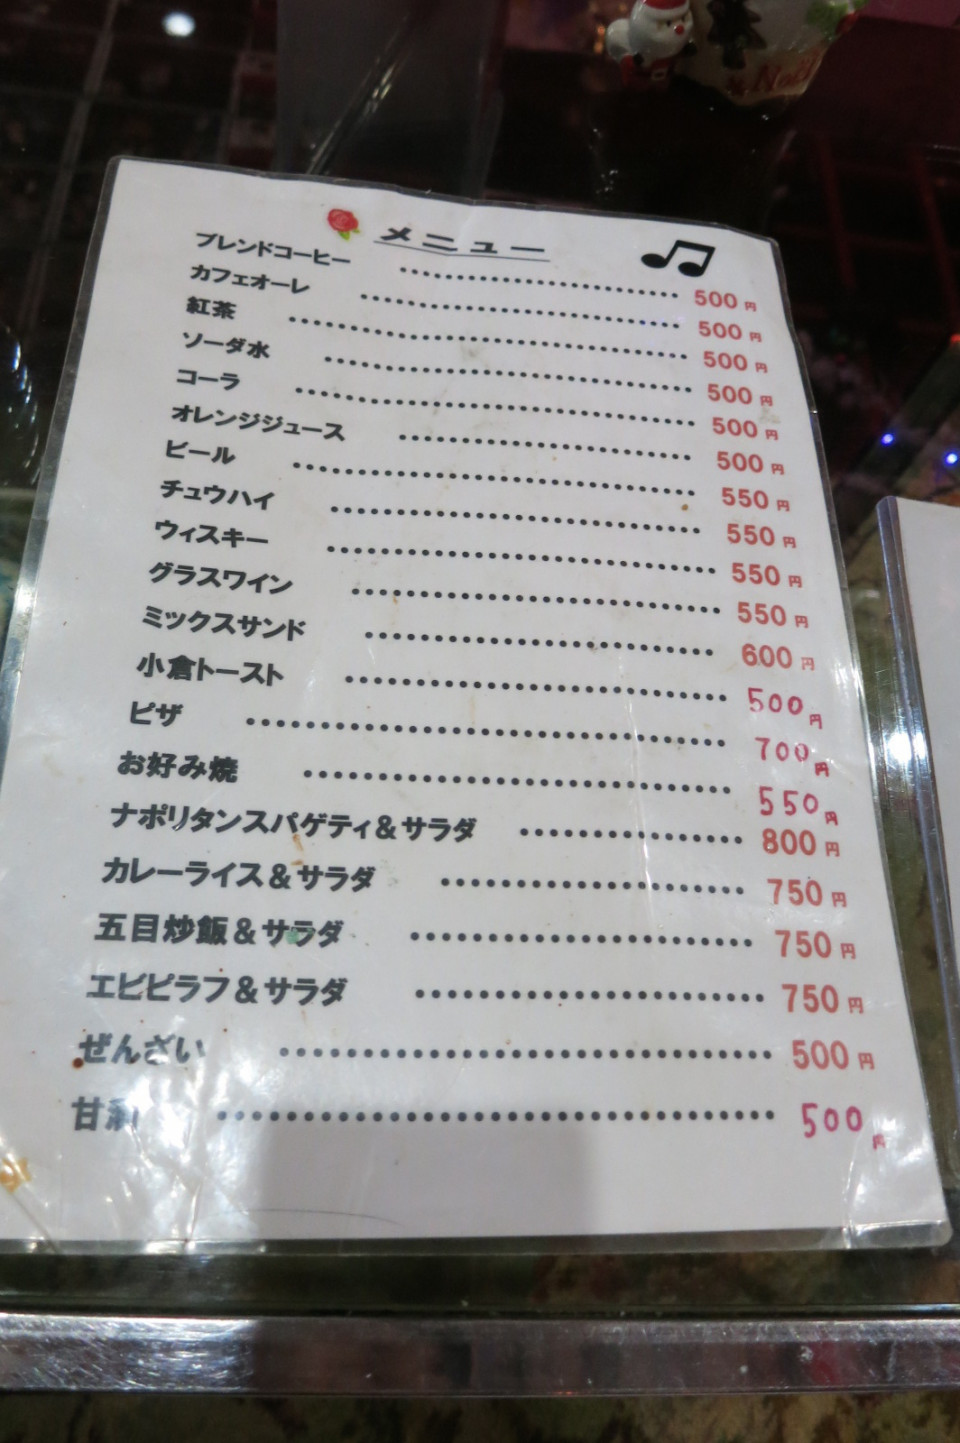 メニュー
ブレンドコーヒー ・・・・・・・・・・・・・・・・・・・・・・・・ 500円
カフェオーレ ・・・・・・・・・・・・・・・・・・・・・・・・ 500円
紅茶 ・・・・・・・・・・・・・・・・・・・・・・・・ 500円
ソーダ水 ・・・・・・・・・・・・・・・・・・・・・・・・ 500円
コーラ ・・・・・・・・・・・・・・・・・・・・・・・・ 500円
オレンジジュース ・・・・・・・・・・・・・・・・・・・・・・・・ 500円
ビール ・・・・・・・・・・・・・・・・・・・・・・・・ 550円
チュウハイ ・・・・・・・・・・・・・・・・・・・・・・・・ 550円
ウィスキー ・・・・・・・・・・・・・・・・・・・・・・・・ 550円
グラスワイン ・・・・・・・・・・・・・・・・・・・・・・・・ 550円
ミックスサンド ・・・・・・・・・・・・・・・・・・・・・・・・ 600円
小倉トースト ・・・・・・・・・・・・・・・・・・・・・・・・ 500円
ピザ ・・・・・・・・・・・・・・・・・・・・・・・・ 700円
お好み焼 ・・・・・・・・・・・・・・・・・・・・・・・・ 550円
ナポリタンスパゲティ&サラダ ・・・・・・・・・・・・・・・・ 800円
カレーライス&サラダ ・・・・・・・・・・・・・・・・・・・・ 750円
五目炒飯&サラダ ・・・・・・・・・・・・・・・・・・・・・・ 750円
エビピラフ&サラダ ・・・・・・・・・・・・・・・・・・・・・・ 750円
ぜんざい ・・・・・・・・・・・・・・・・・・・・・・・・ 500円
甘酒 ・・・・・・・・・・・・・・・・・・・・・・・・ 500円